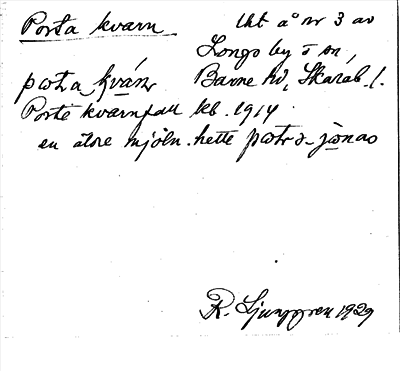 Porta kvarn
Vkt å nr 3 av
Longs by o sn,
Barne hd, Skarab. l.
pota kván
Porte kvarnfall kb. 1914
en äldre mjöln. hette
R. Ljunggren 1929